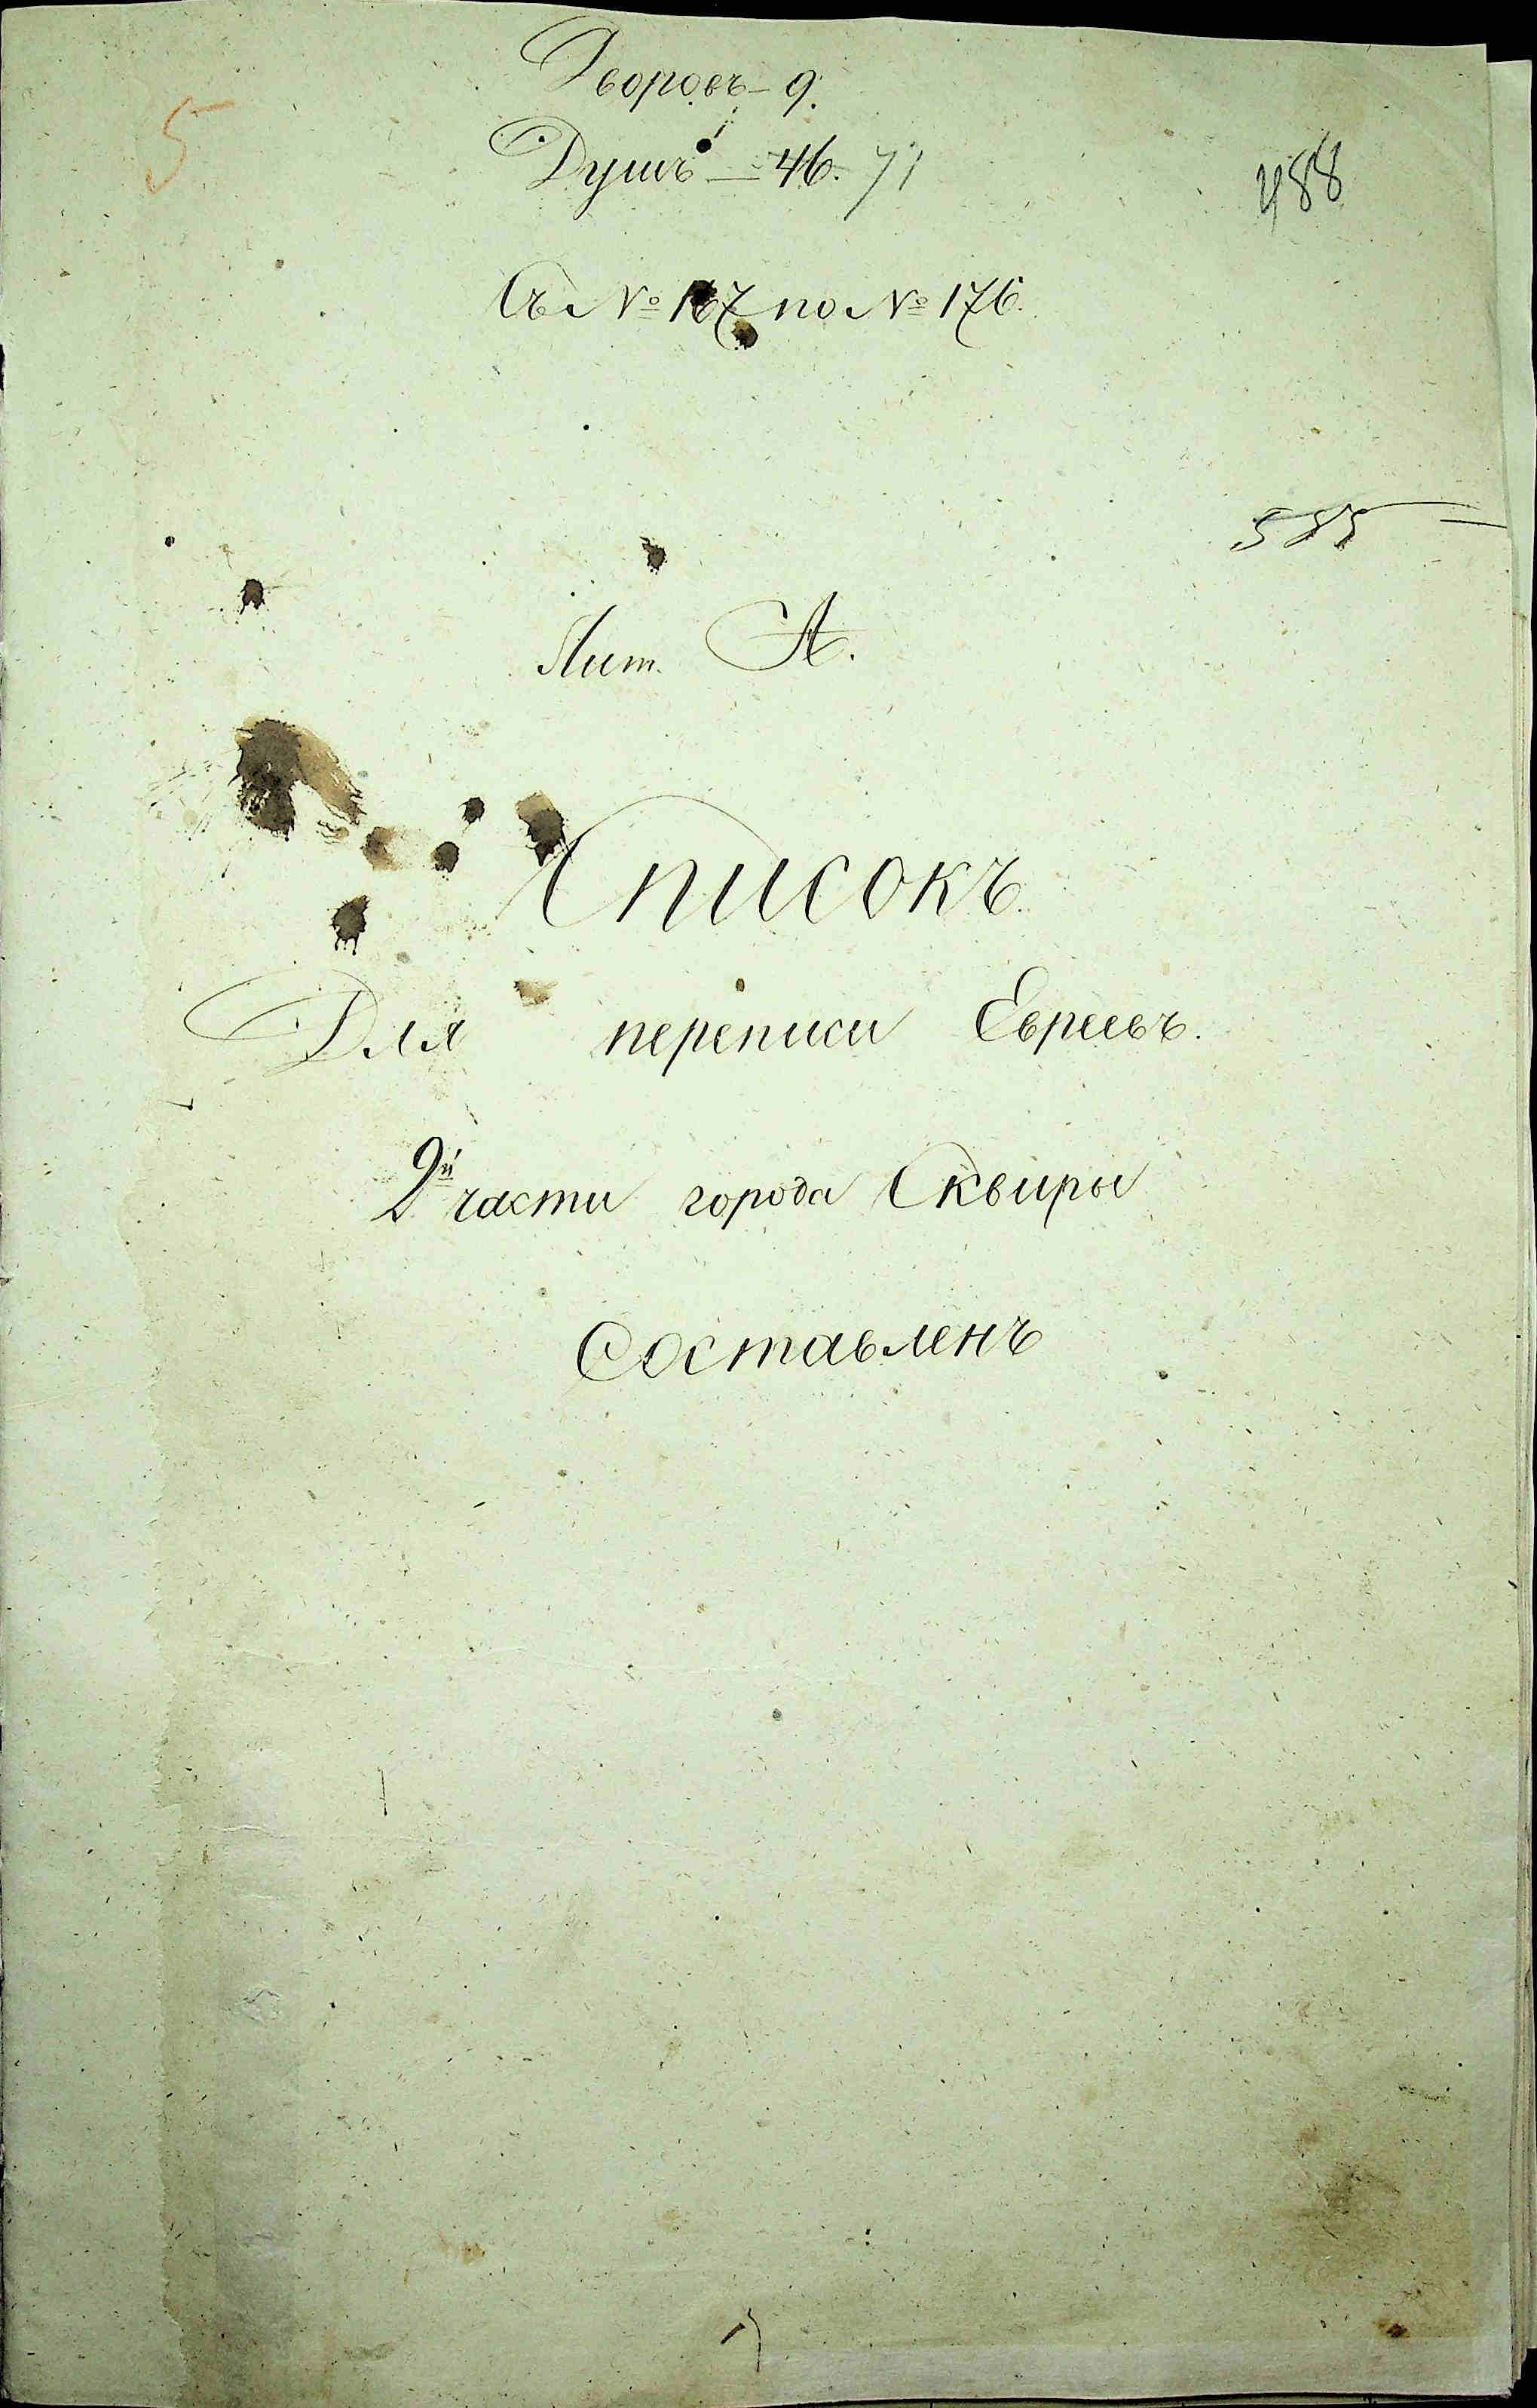 Дворовъ – 9.
5
Душъ – 46. 71
488
Съ № 167 по № 176.
585
Лит. А.
Списокъ
Для переписи Евреевъ.
2й части города Сквиры
Составленъ